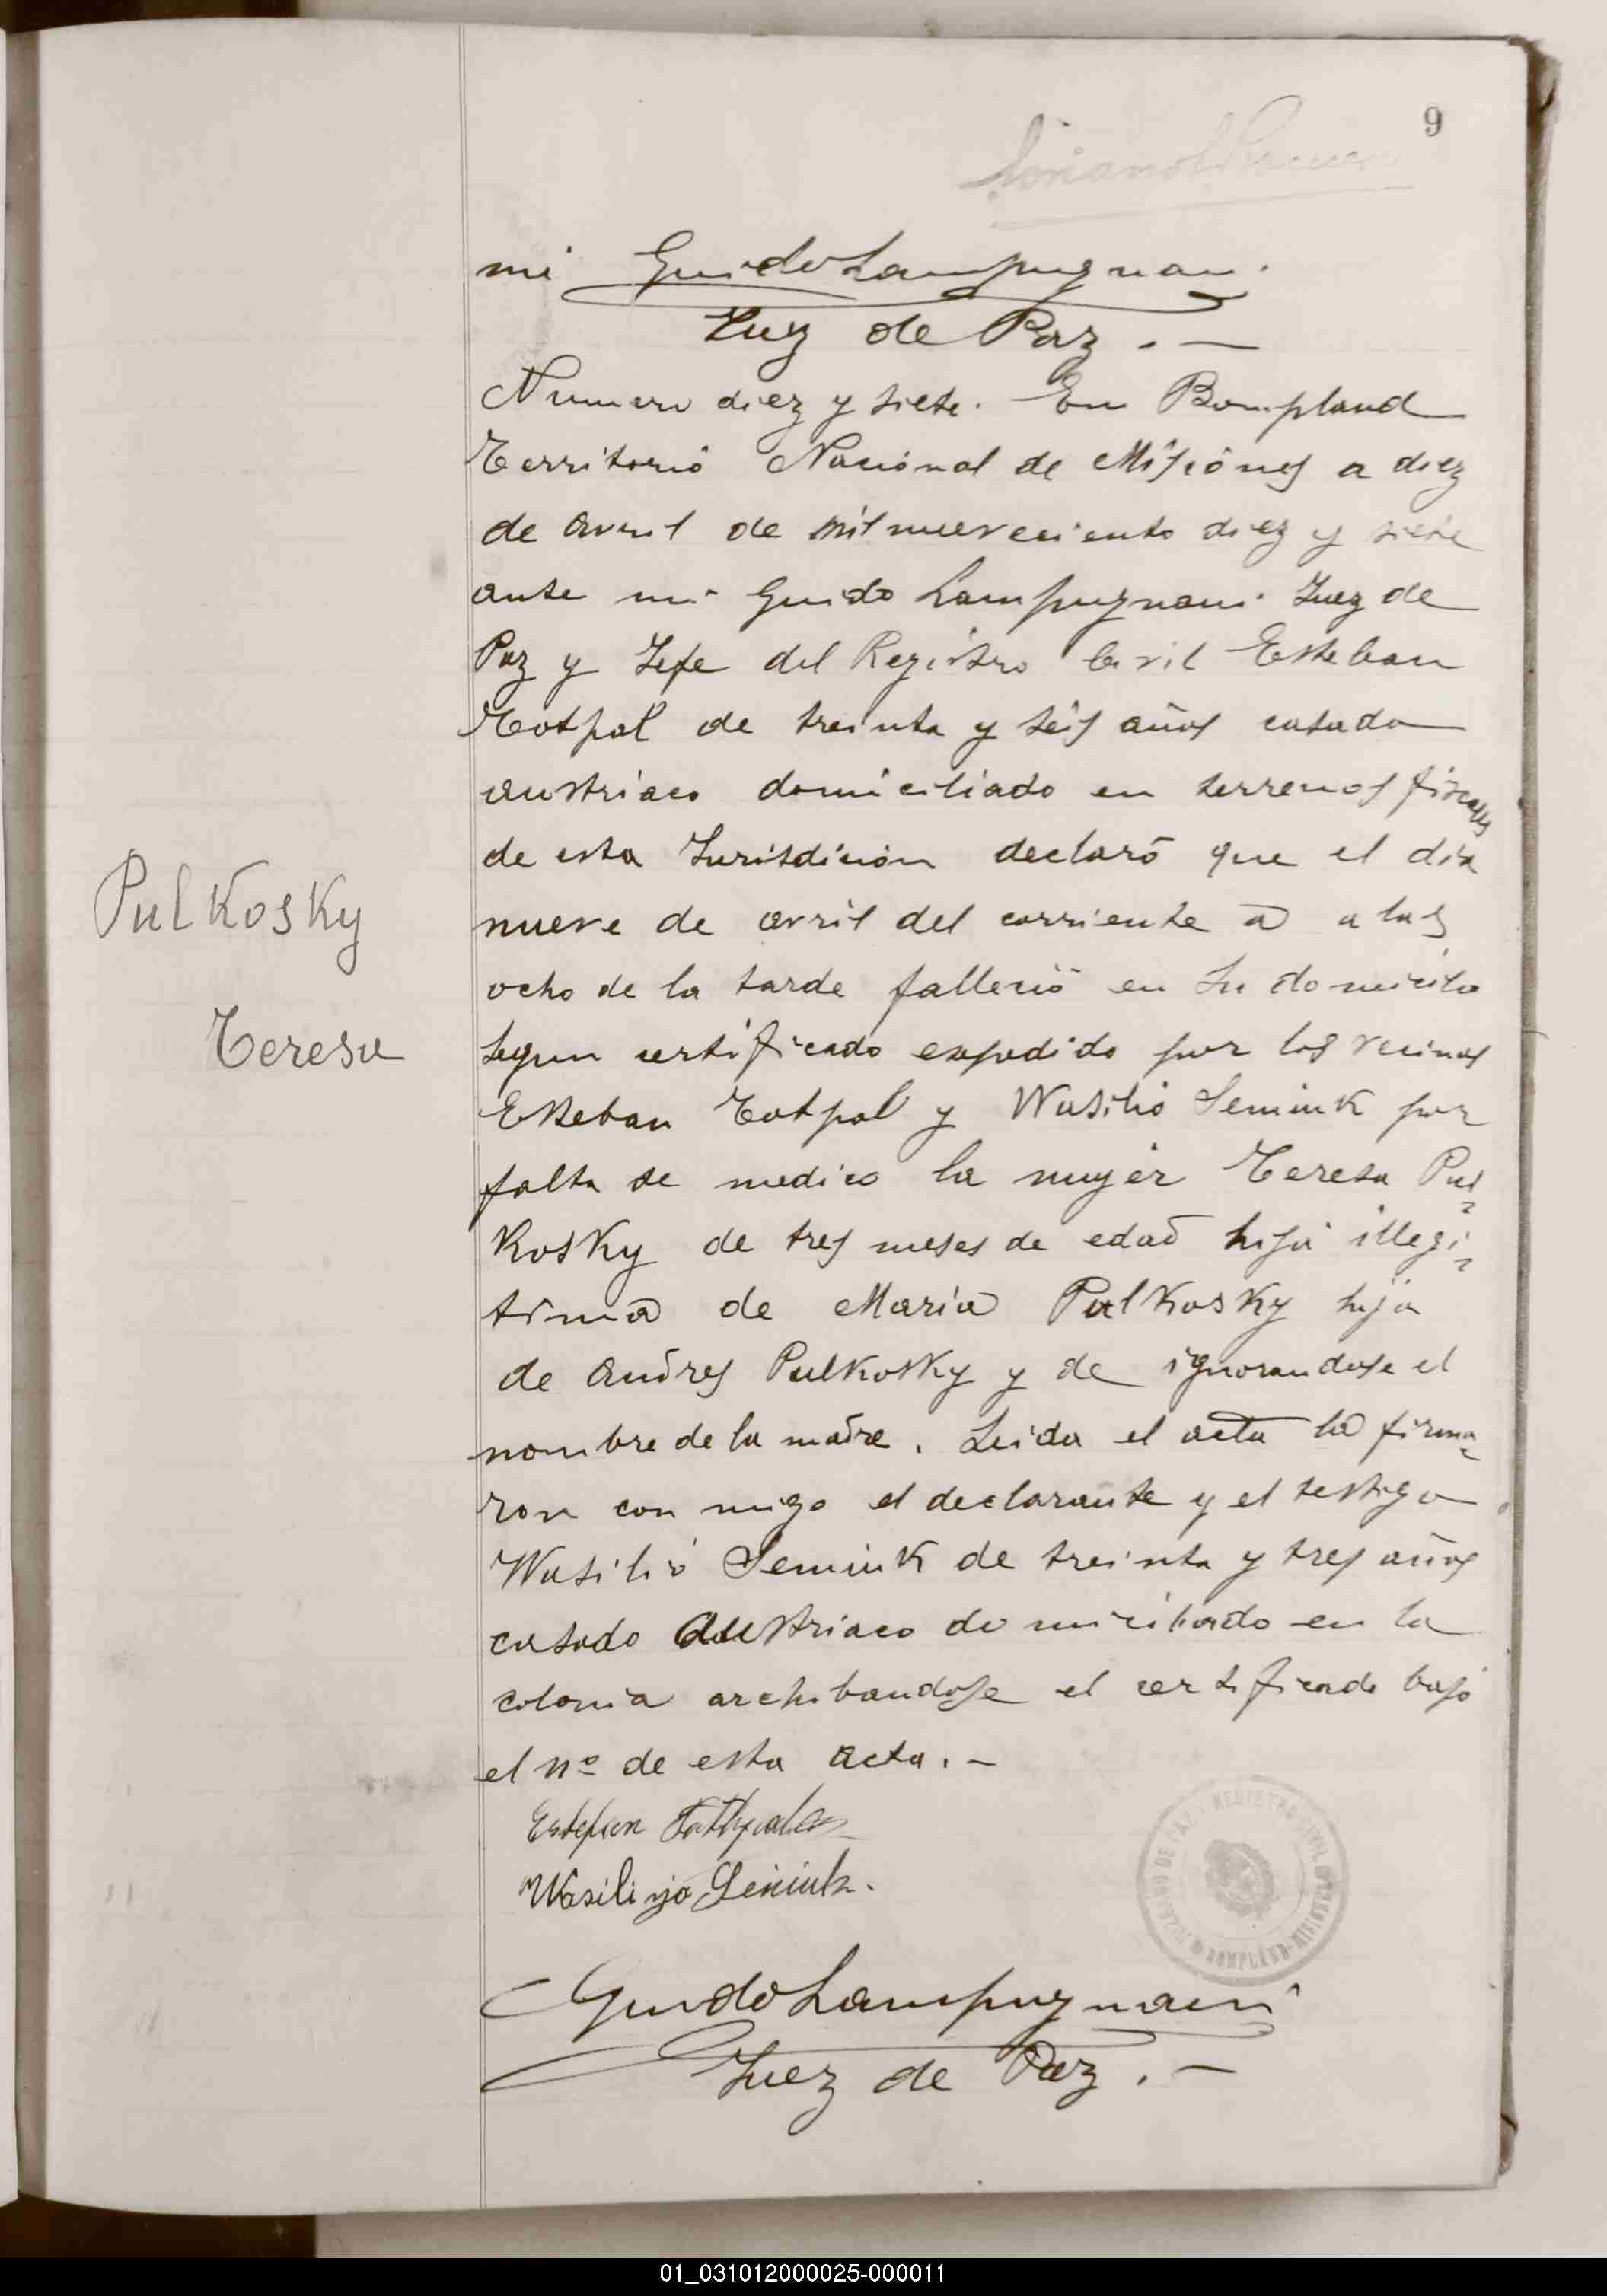 9
mi Guido Lampugnani
Juez de Paz . —
Numero diez y siete. En Bompland
Territorio Nacional de Misiones a diez
de avril de mil nuerecientо diez y siete
ante mi Guido Lampugnani Juez de
Paz y Jefe del Registro Civil Esteban
Totpal de treinta y seis años casado
austriaco domiciliado en terrenos fiscales
de esta Jurisdicion declaró que el dia
nueve de avril del corriente a a las
ocho de la tarde falleció en su domicilio
segun certificado expedido por los vecinos
Esteban Totpal y Wasilio Semiuk por
falta de medico la mujer Teresa Pul=
Kosky de tres meses de edad hija illegi=
tima de Maria Pulkosky hija
de Andres Pulkosky y de ignorandose el
nombre de la madre. Leida el acta la firma=
ron con migo el declarante y el testigo
Wasilio Semiuk de treinta y tres años
casado Austriaco domiciliado en la
colonia archibandose el certificado bajo
el nº de esta acta. —
Pulkosky
Teresa
Wasilijo Seniuk.
Guido Lampugnani
Juez de Paz . —
JUZGADO DE PAZ Y REGISTRO CIVIL
BOMPLAND - MISIONES
01_031012000025-000011